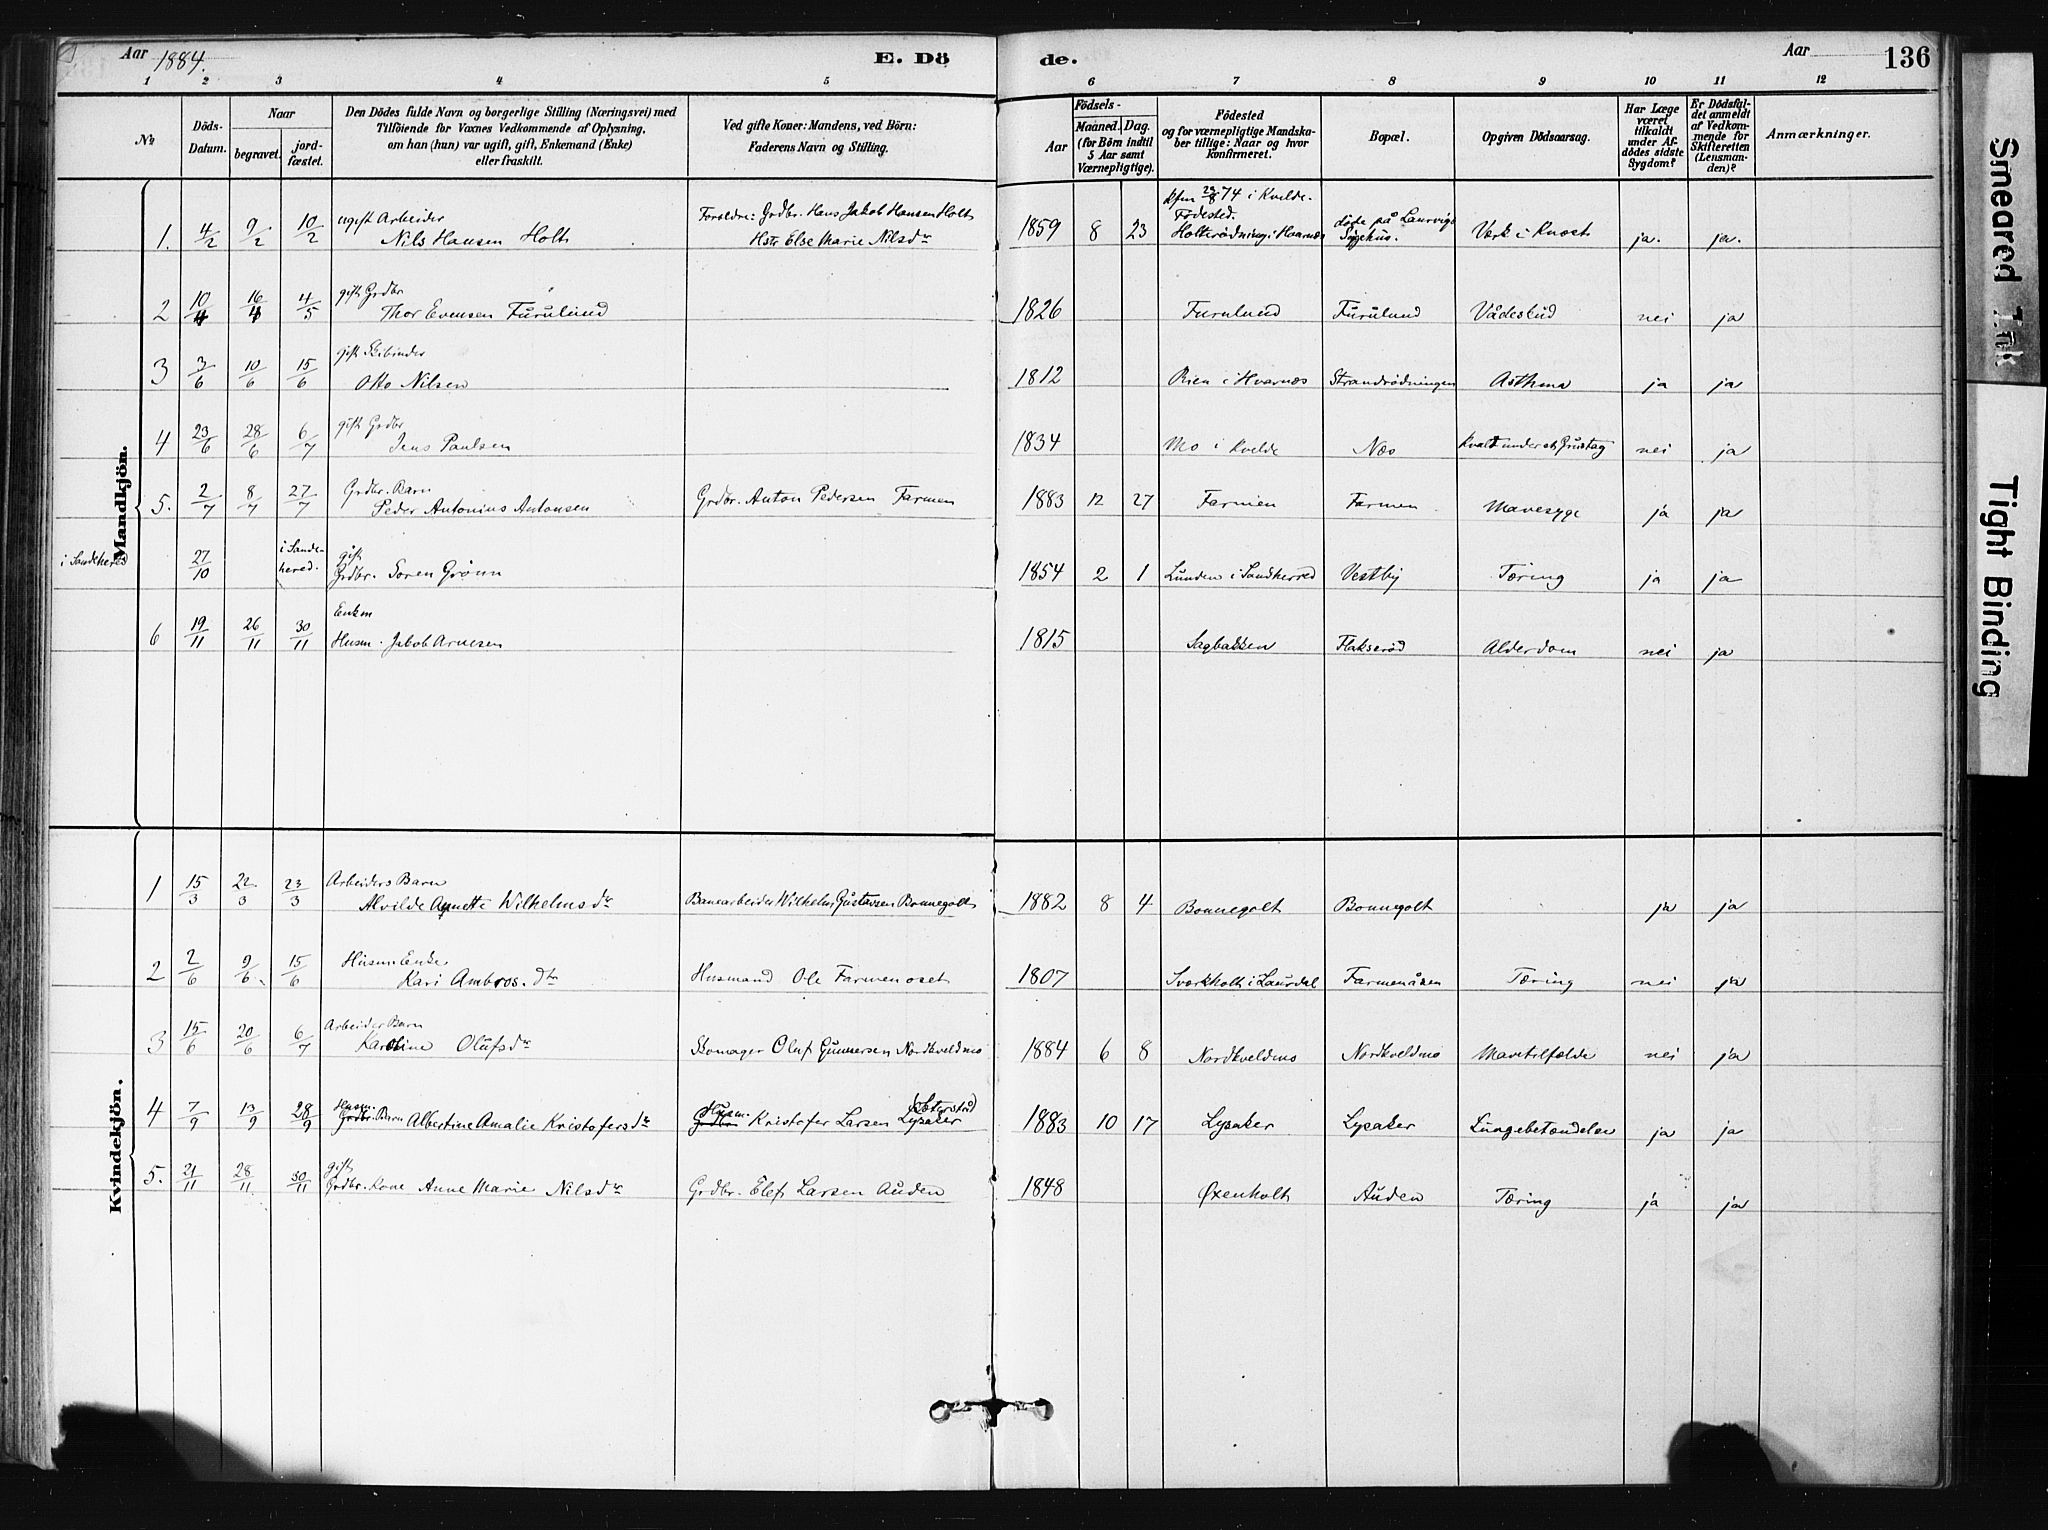 Aar 1884. E. Döde. Aar 136
1 2 3 4 5 6 7 8 9 10 11 12
No
Döds-Datum.
Naar
begravet.
jordfæstet.
Den Dödes fulde Navn og borgerlige Stilling (Næringsvei) med
Tilföiende for Voxnes Vedkommende af Oplysning,
om han (hun) var ugift, gift, Enkemand (Enke)
eller fraskilt.
Ved gifte Koner: Mandens, ved Börn:
Faderens Navn og Stilling.
Födsels-
Aar
Maaned. Dag.
(for Börn indtil
5 Aar samt
Værnepligtige).
Födested
og for værnepligtige Mandska-
ber tillige: Naar og hvor
konfirmeret.
Bopæl.
Opgiven Dödsaarsag.
Har Læge
været
tilkaldt
under Af-
dödes sidste
Sygdom?
Er Dödsfal-
det anmeldt
af Vedkom-
mende for
Skifteretten
(Lensman-
den)?
Anmærkninger.
Mandkjön.
1. 4/2 9/2 10/2 ugift Arbeider Nils Hansen Holt Foreldre: Grdbr. Hans Jakob Hansen Holt Hstr Else Marie Nilsdr 1859 8 23 Kfm 74 i Kvelde. Födested. Holterødning i Hvarnes döde på Laurvigs Sygehus. Værk i Knæet ja. ja.
2 10/4 16/4 4/5 gift Grdbr Thor Evensen Furulund 1826 Furulund Furulund Vådeskud nei ja
3 3/6 10/6 15/6 gift Skibinder Otto Nilsen 1812 Rien i Hvarnæs Strandrødningen Asthma ja ja
4 23/6 28/6 6/7 gift Grdbr Jens Paulsen 1834 Mo i Kvelde Næs Kvalt under et Grustag nei ja
5. 2/7 8/7 27/7 Grdbr. Barn Peder Antonius Antonsen Grdbr. Anton Pedersen Farmen 1883 12 27 Farmen Farmen Mavesyge ja ja
i Sandeherred 27/10 i Sandehered. gift Grdbr. Soren Grönn 1854 2 1 Lunden i Sandherred Vestby Tæring ja ja
6 19/11 26/11 30/11 Enkem Husm. Jakob Arnesen 1815 Sagbakken Flakserød Alderdom nei ja
Kvindekjön.
1 15/3 22/3 23/3 Arbeiders Barn Alvilde Agnette Wilhelmsdr Banearbeider Wilhelm Gustavsen Bonnegolt 1882 8 4 Bonnegolt Bonnegolt ja ja
2 2/6 9/6 15/6 Husm Enke Kari Ambros.dtr Husmand Ole Farmenoset 1807 Sværkholt i Laurdal Farmenåsen Tæring nei ja
3 15/6 20/6 6/7 Arbeider Barn Karoline Olufsdr Skomager Oluf Gunnersen Nordkveldmo 1884 6 8 Nordkveldmo Nordkveldmo Mavetilfælde nei ja
4 7/9 13/9 28/9 Husm. Grdbr. Barn Albertine Amalie Kristofersdr Husm. Kristofer Larsen Lysaker 1883 10 17 Lysaker Lysaker Lungebetændelse ja ja
5. 21/11 28/11 30/11 gift Grdbr. Kone Anne Marie Nilsdr Grdbr. Elef Larsen Auden 1848 Øxenholt Auden Tæring ja ja
Smeared Ink
Tight Binding